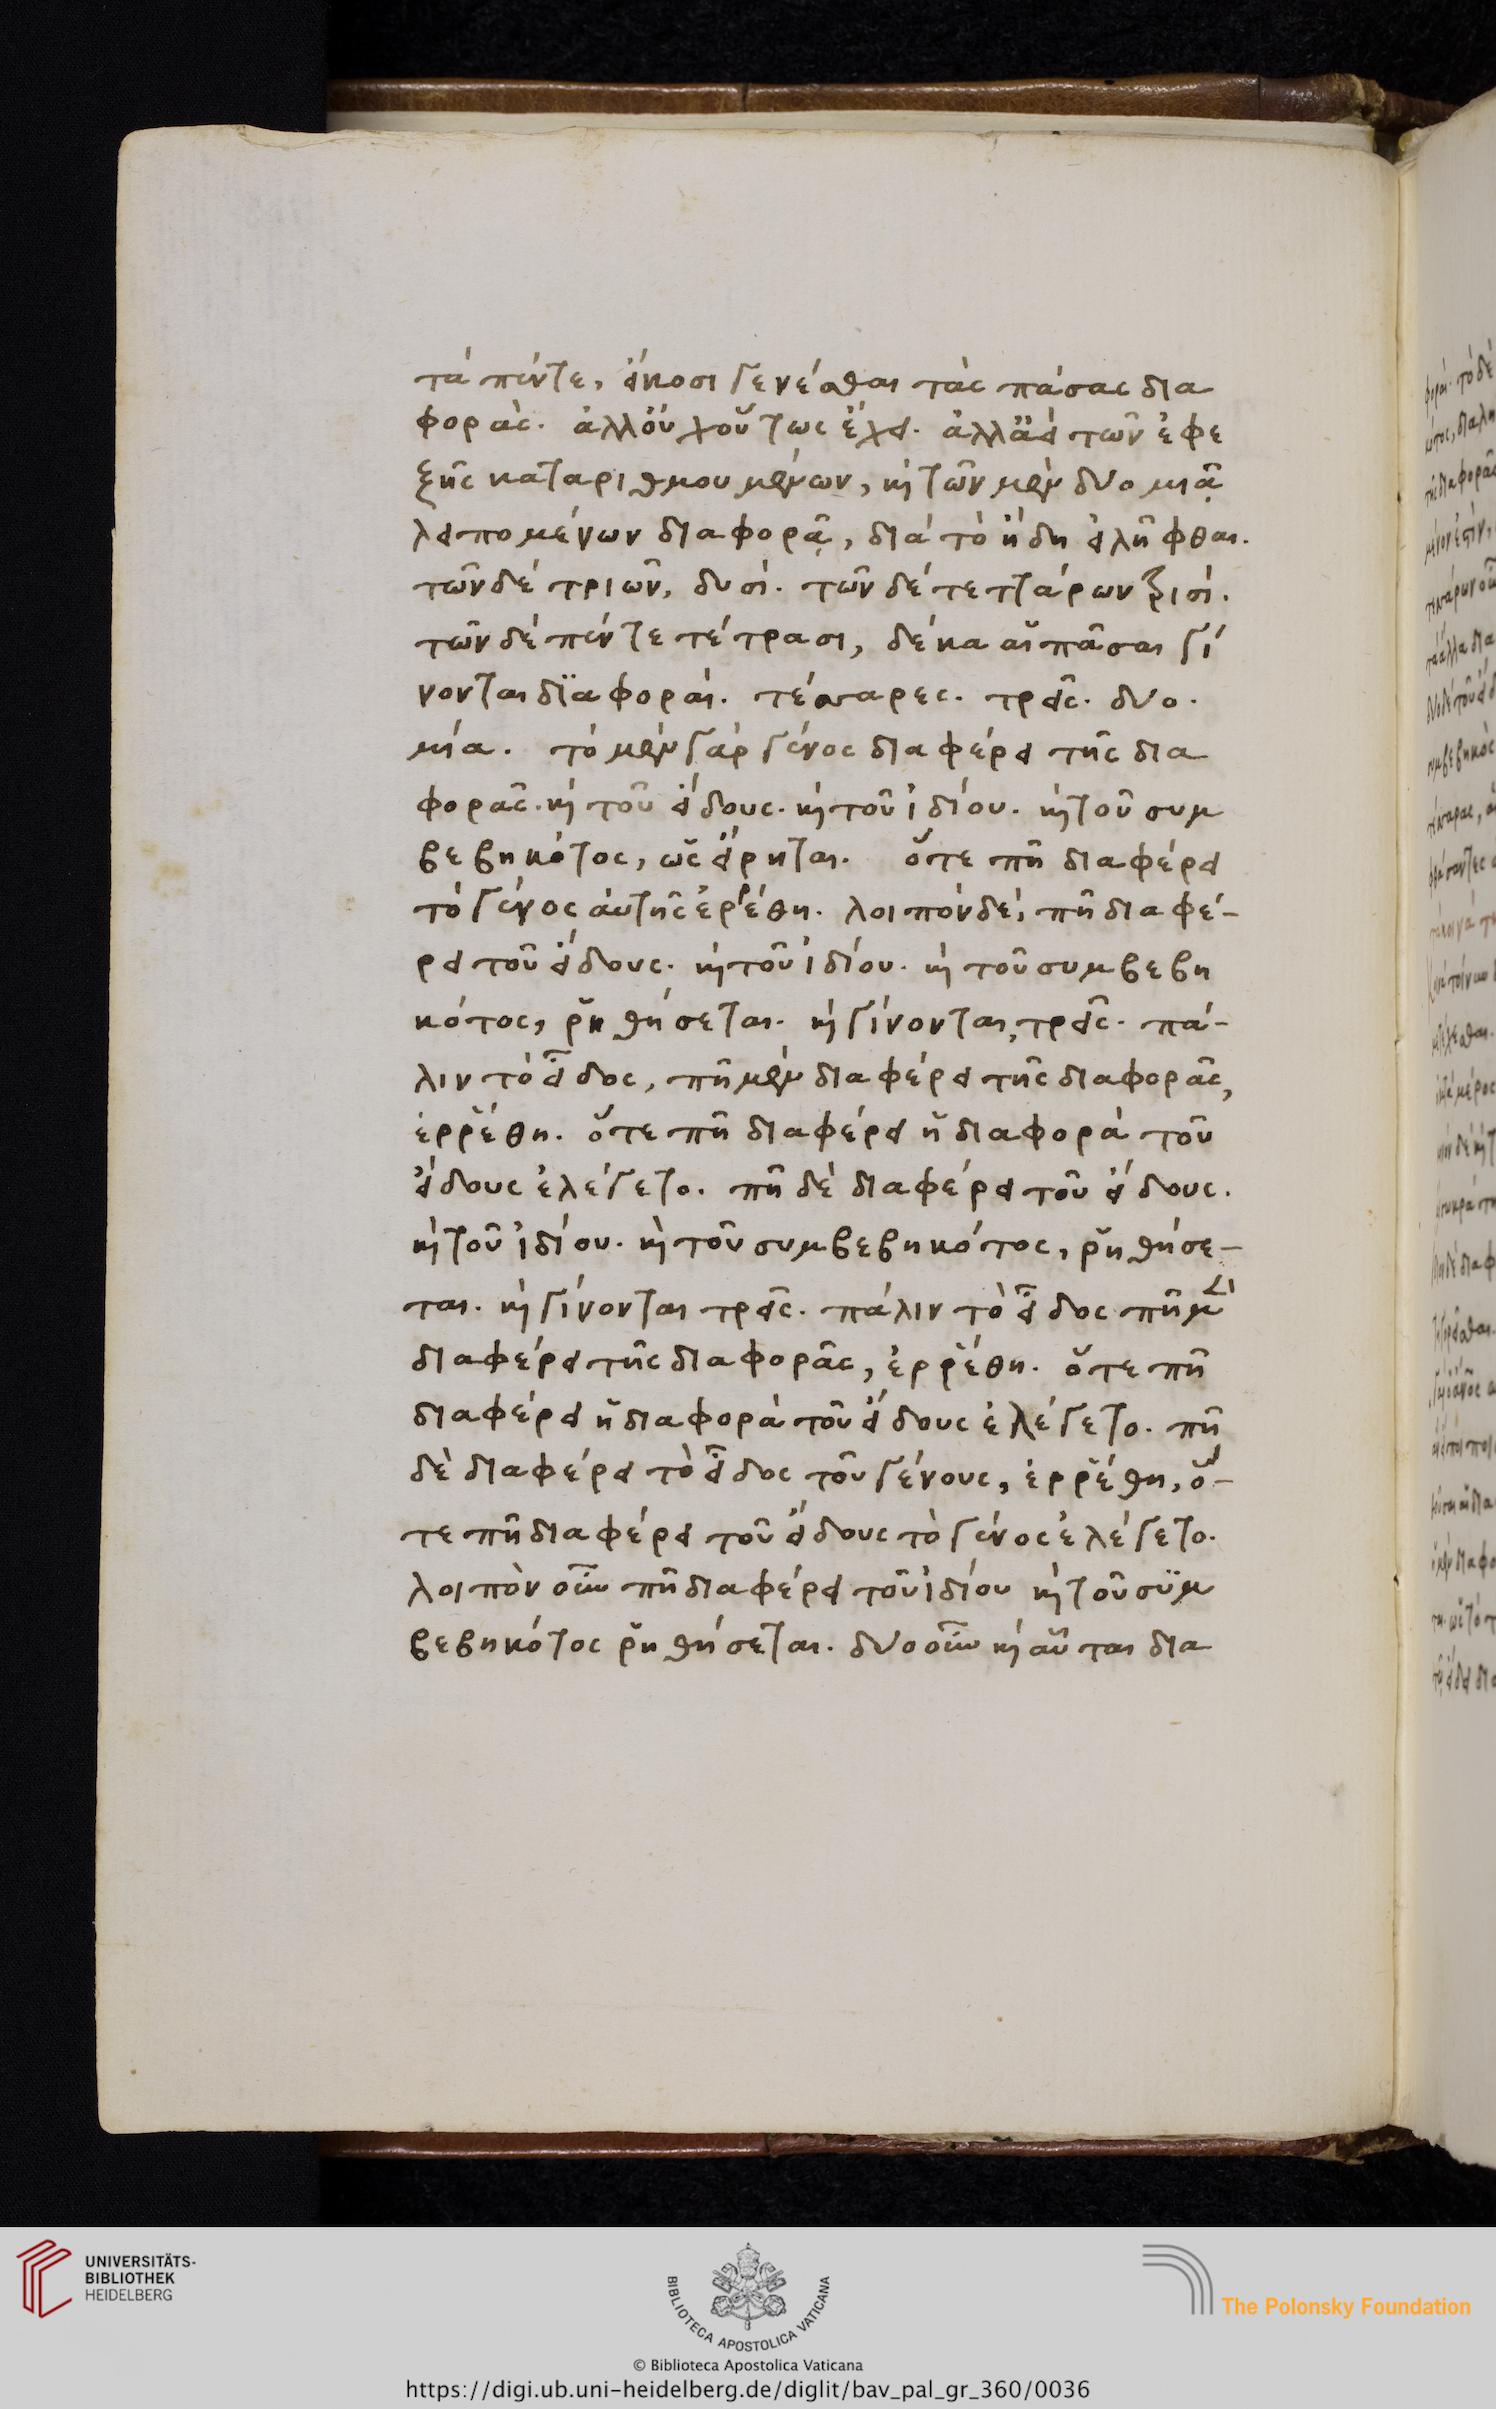 τὰ πέντε, εἴκοσι γενέσθαι τὰς πάσας δια
φοράς. ἀλλ' οὐχ οὕτως ἔχει. ἀλλ' ἀεὶ τῶν ἐφε
ξῆς καταριθμουμένων, κὶ τῶν μὲν δύο μιᾷ
λειπομένων διαφορᾷ, διὰ τὸ ἤδη εἰλῆφθαι.
τῶν δὲ τριῶν, δυσί. τῶν δὲ τεττάρων τρισί.
τῶν δὲ πέντε τέτρασι, δέκα αἱ πᾶσαι γί
νονται διαφοραί. τέσσαρες. τρεῖς. δύο.
μία. τὸ μὲν γὰρ γένος διαφέρει τῆς δια
φορᾶς. κὶ τοῦ εἴδους. κὶ τοῦ ἰδίου. κὶ τοῦ συμ
βεβηκότος, ὡς εἴρηται. ὅτε πῆ διαφέρει
τὸ γένος αὐτῆς ἐρρέθη. λοιπὸν δέ, πῆ διαφέ-
ρει τοῦ εἴδους. κὶ τοῦ ἰδίου. κὶ τοῦ συμβεβη
κότος, ῥηθήσεται. κὶ γίνονται, τρεῖς. πά-
λιν τὸ εἶδος, πῆ μὲν διαφέρει τῆς διαφορᾶς,
ἐρρέθη. ὅτε πῆ διαφέρει ἡ διαφορὰ τοῦ
εἴδους ἐλέγετο. πῆ δὲ διαφέρει τοῦ εἴδους.
κὶ τοῦ ἰδίου. κὶ τοῦ συμβεβηκότος, ῥηθήσε-
ται. κὶ γίνονται τρεῖς. πάλιν τὸ εἶδος πῆ μὲν
διαφέρει τῆς διαφορᾶς, ἐρρέθη. ὅτε πῆ
διαφέρει ἡ διαφορὰ τοῦ εἴδους ἐλέγετο. πῆ
δὲ διαφέρει τὸ εἶδος τοῦ γένους, ἐρρέθη, ὅ-
τε πῆ διαφέρει τοῦ εἴδους τὸ γένος ἐλέγετο.
λοιπὸν οὖν πῆ διαφέρει τοῦ ἰδίου κὶ τοῦ συμ
βεβηκότος ῥηθήσεται. δύο οὖν κὶ αὗται δια
UNIVERSITÄTS-
BIBLIOTHEK
HEIDELBERG
BIBLIOTECA APOSTOLICA VATICANA
The Polonsky Foundation
© Biblioteca Apostolica Vaticana
https://digi.ub.uni-heidelberg.de/diglit/bav_pal_gr_360/0036